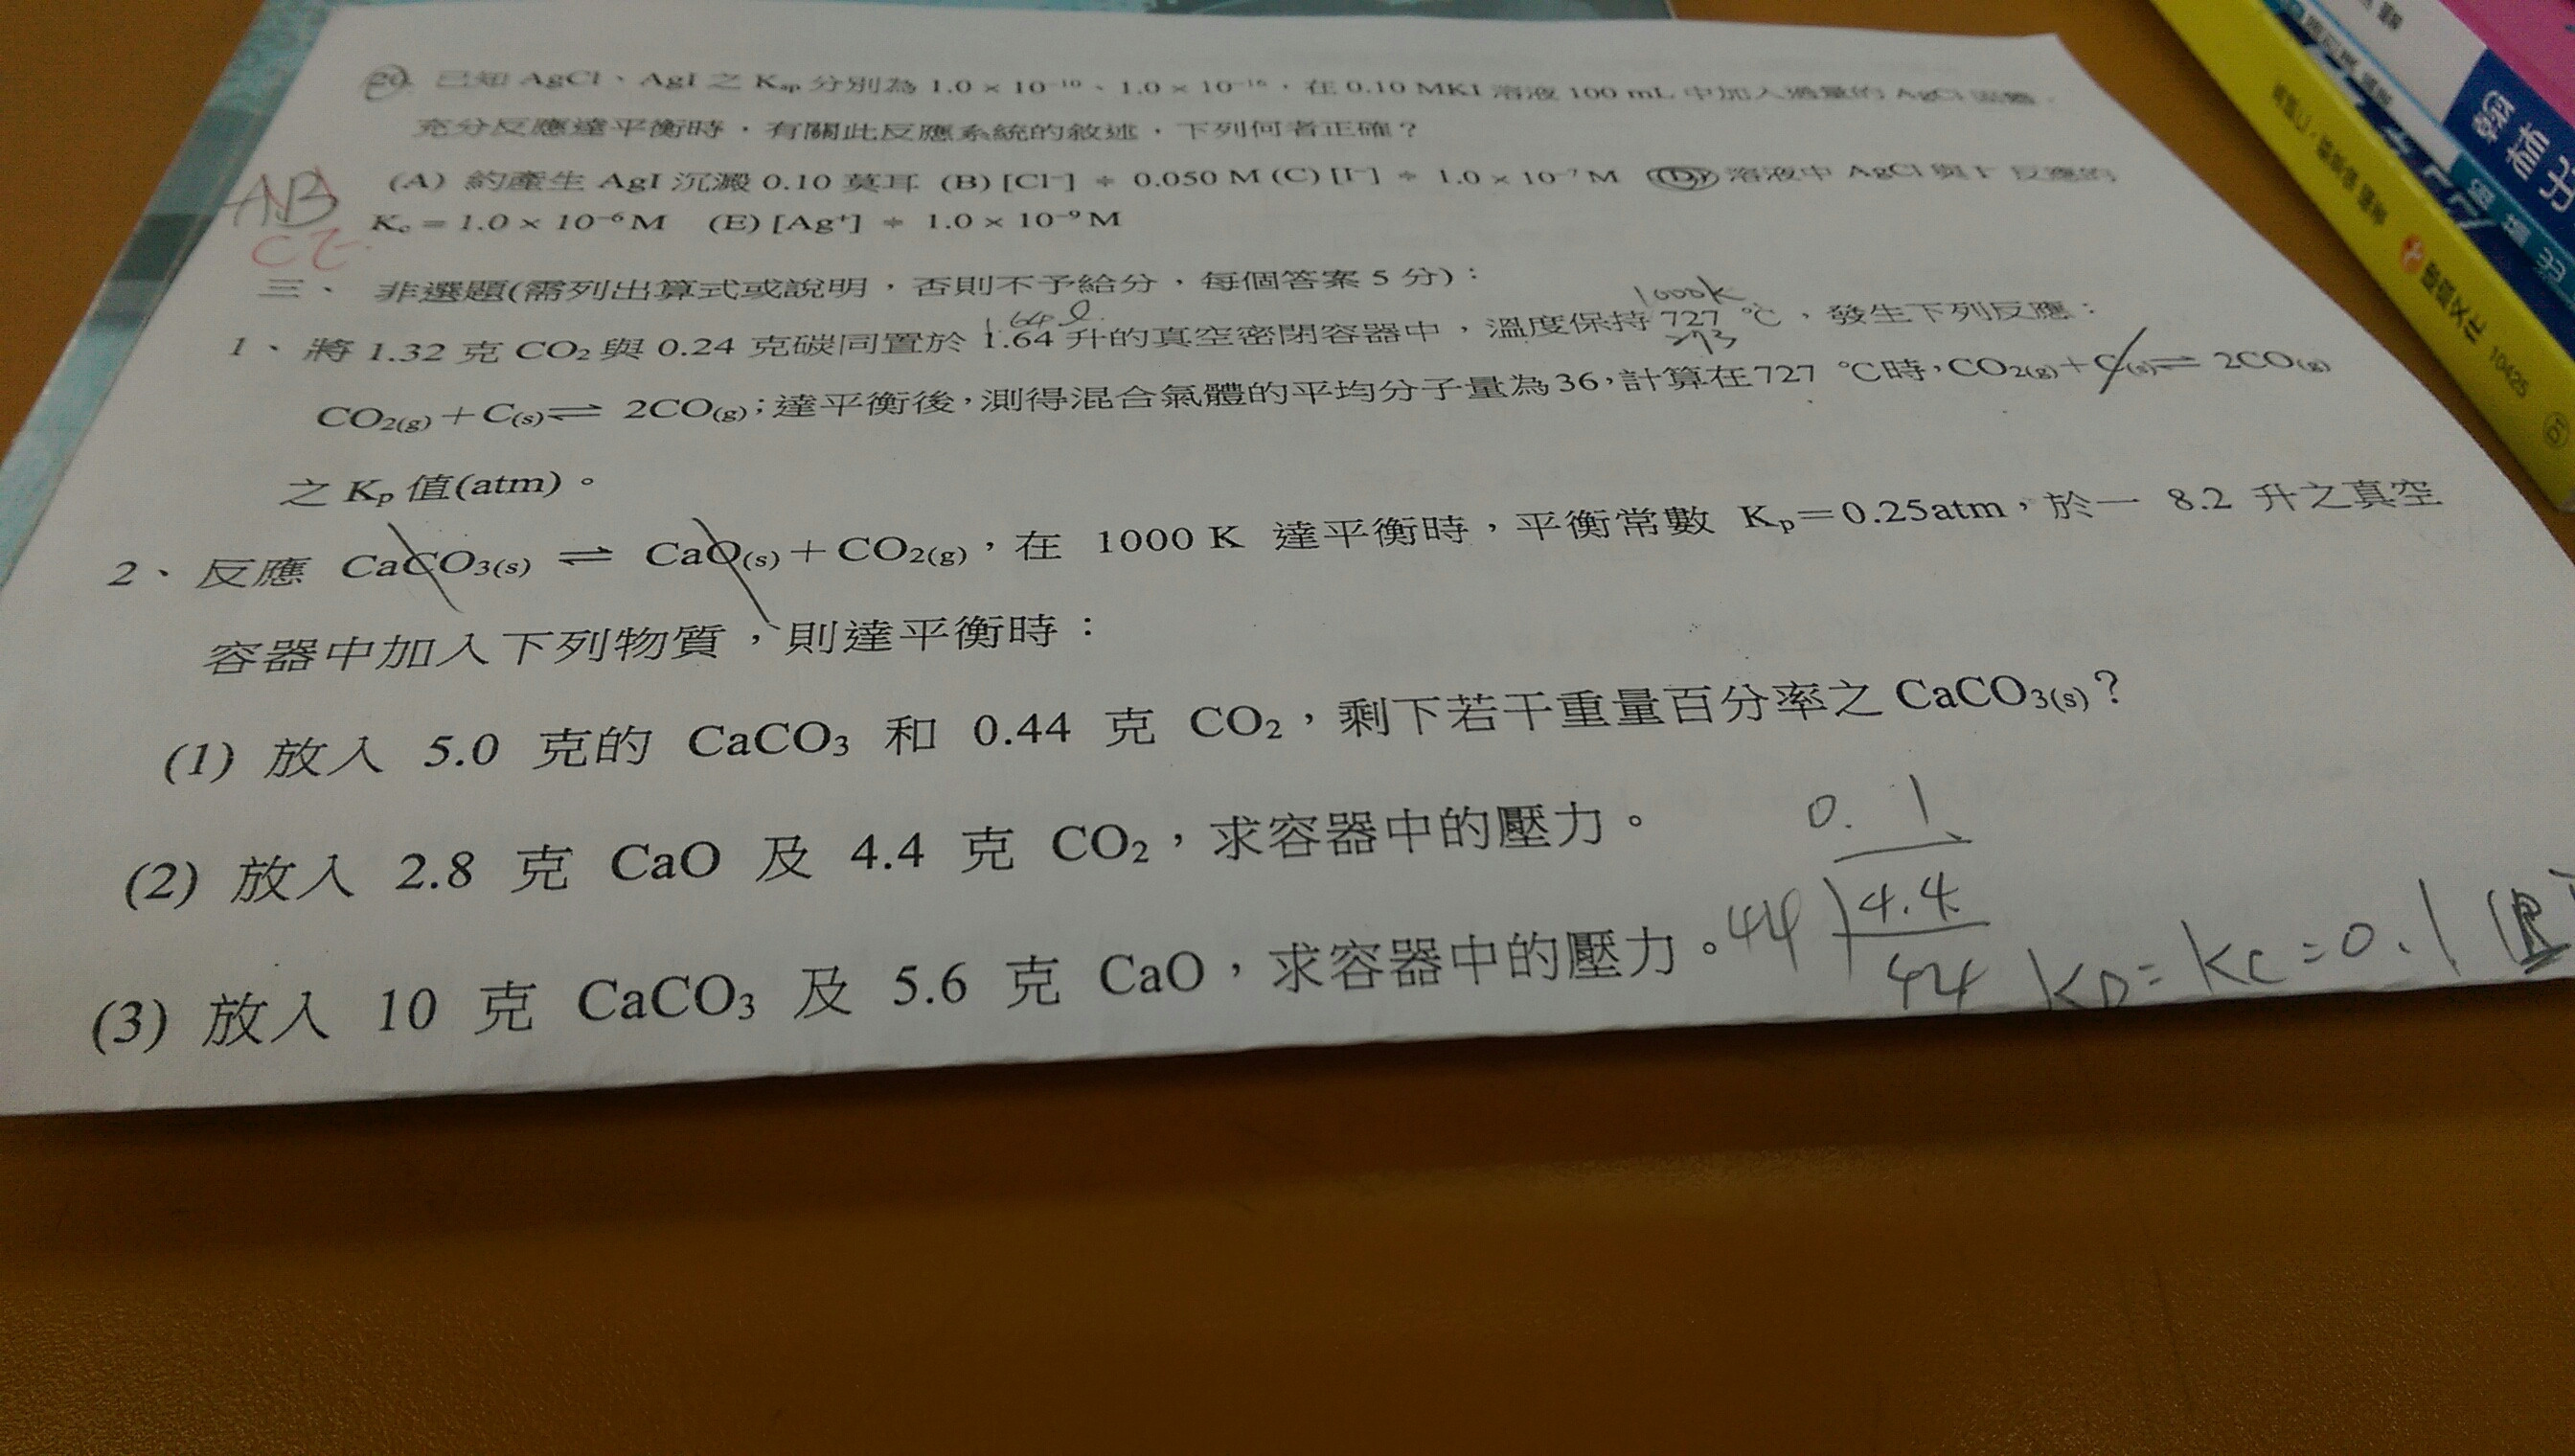 20. 已知 AgCl、AgI 之 Ksp 分別為 1.0 × 10⁻¹⁰、1.0 × 10⁻¹⁶，在 0.10 MKI 溶液 100 mL 中加入過量的 AgCl 固體，
充分反應達平衡時，有關此反應系統的敘述，下列何者正確？
(A) 約產生 AgI 沉澱 0.10 莫耳 (B) [Cl⁻] ≑ 0.050 M (C) [I⁻] ≑ 1.0 × 10⁻⁷ M (D) 溶液中 AgCl 與 I⁻ 反應的
AB
Kc = 1.0 × 10⁻⁶ M (E) [Ag⁺] ≑ 1.0 × 10⁻⁹ M
三、 非選題(需列出算式或說明，否則不予給分，每個答案 5 分)：
1000k
1.64 l
1、將 1.32 克 CO₂ 與 0.24 克碳同置於 1.64 升的真空密閉容器中，溫度保持 727 ℃，發生下列反應：
273
CO₂(g)＋C(s)⇌ 2CO(g)；達平衡後，測得混合氣體的平均分子量為36，計算在727 ℃時，CO₂(g)＋C(s)⇌ 2CO(g)
之 Kp 值(atm)。
2、反應 CaCO₃(s) ⇌ CaO(s)＋CO₂(g)，在 1000 K 達平衡時，平衡常數 Kp＝0.25atm，於一 8.2 升之真空
容器中加入下列物質，則達平衡時：
(1) 放入 5.0 克的 CaCO₃ 和 0.44 克 CO₂，剩下若干重量百分率之 CaCO₃(s)？
(2) 放入 2.8 克 CaO 及 4.4 克 CO₂，求容器中的壓力。
(3) 放入 10 克 CaCO₃ 及 5.6 克 CaO，求容器中的壓力。
0.1
44 4.4
44
kp = kc = 0.1
屠青分
10425